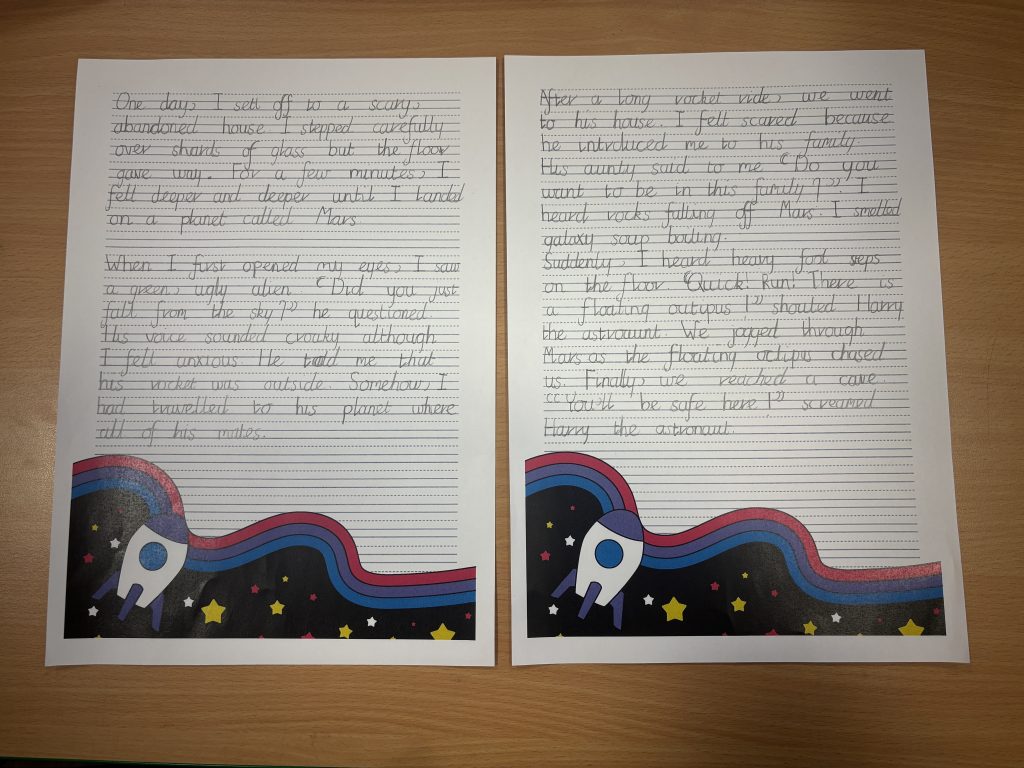 One day, I sett off to a scary,
abandoned house. I stepped carefully
over shards of glass but the floor
gave way. For a few minutes, I
fell deeper and deeper until I landed
on a planet called Mars.
When I first opened my eyes, I saw
a green, ugly alien. "Did you just
fall from the sky?" he questioned.
His voice sounded croaky although
I felt anxious. He told me that
his rocket was outside. Somehow, I
had travelled to his planet where
all of his mates.
After a long rocket ride, we went
to his house. I felt scared because
he introduced me to his family.
His aunty said to me "Do you
want to be in this family?". I
heard rocks falling off Mars. I smelled
galaxy soup boiling.
Suddenly, I heard heavy foot steps
on the floor "Quick! Run! There is
a floating octupus!" shouted Harry
the astronaunt. We jogged through
Mars as the floating octipus chased
us. Finally, we reached a cave.
"You'll be safe here!" screamed
Harry the astronaut.